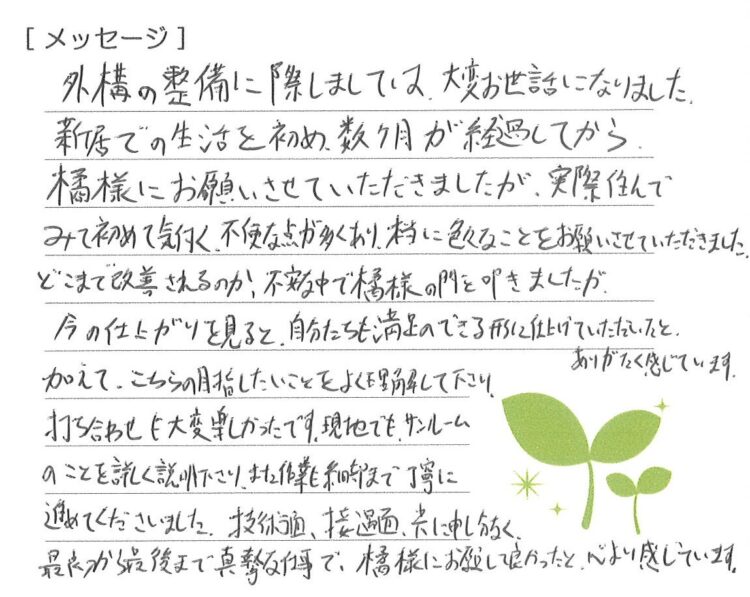 [ メッセージ ]
外構の整備に際しましては、大変お世話になりました。
新居での生活を初め、数ケ月が経過してから、
橘様にお願いさせていただきましたが、実際住んで
みて初めて気付く、不便な点が多くあり、本当に色々なことをお願いさせていただきました。
どこまで改善されるのか、不安な中で橘様の門を叩きましたが、
今の仕上がりを見ると、自分たちも満足のできる形に仕上げていただいたと、
ありがたく感じています。
加えて、こちらの目指したいことをよく理解して下さり、
打ち合わせも大変楽しかったです。現地でも、サンルーム
のことを詳しく説明下さり、また作業も細部まで丁寧に
進めてくださいました。技術面、接遇面、共に申し分なく、
最初から最後まで真摯な仕事で、橘様にお願して良かったと、心より感じています。